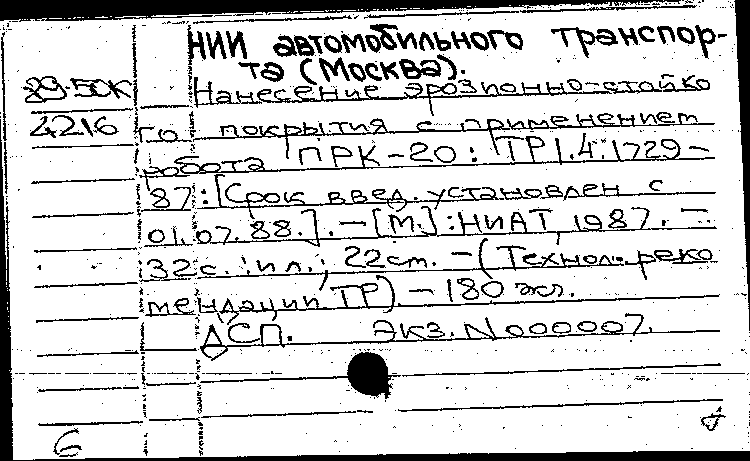 НИИ автомобильного транспор-
та (Москва).
89-50К Нанесение эрозионно-стойко
4216 го покрытия с применением
робота ПРК-20: ТР1.4.1729-
87: [Срок введ. установлен с
01.07.88.]. - [М.]: НИАТ, 1987. -
32с.: ил.; 22 см. - (Технол. реко
мендации ТР) - 180 экз.
ДСП. Экз. N000007.
6